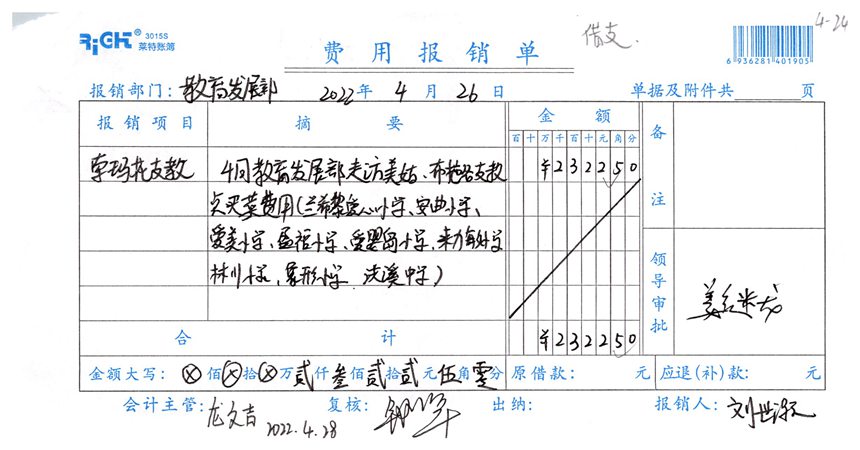 RiGHT® 3015S
莱特账簿
费用报销单
借支.
4-24
6 936281 401905
报销部门: 教育发展部 2022年 4月 26日 单据及附件共 页
报销项目 摘要 金额 备注
百十万千百十元角分
索玛花支教 4月教育发展部走访美姑、布拖各支教 ¥232250
点买菜费用(兰希黎爱心小学、安曲小学、
爱美小学、孟祖小学、爱婴岛小学、
林川小学、象形小学
合计 ¥232250
领导审批
金额大写: ⊗佰⊗拾⊗万贰仟叁佰贰拾贰元伍角零分 原借款: 元 应退(补)款: 元
会计主管: 龙文吉 2022.4.28 复核: 出纳: 报销人: